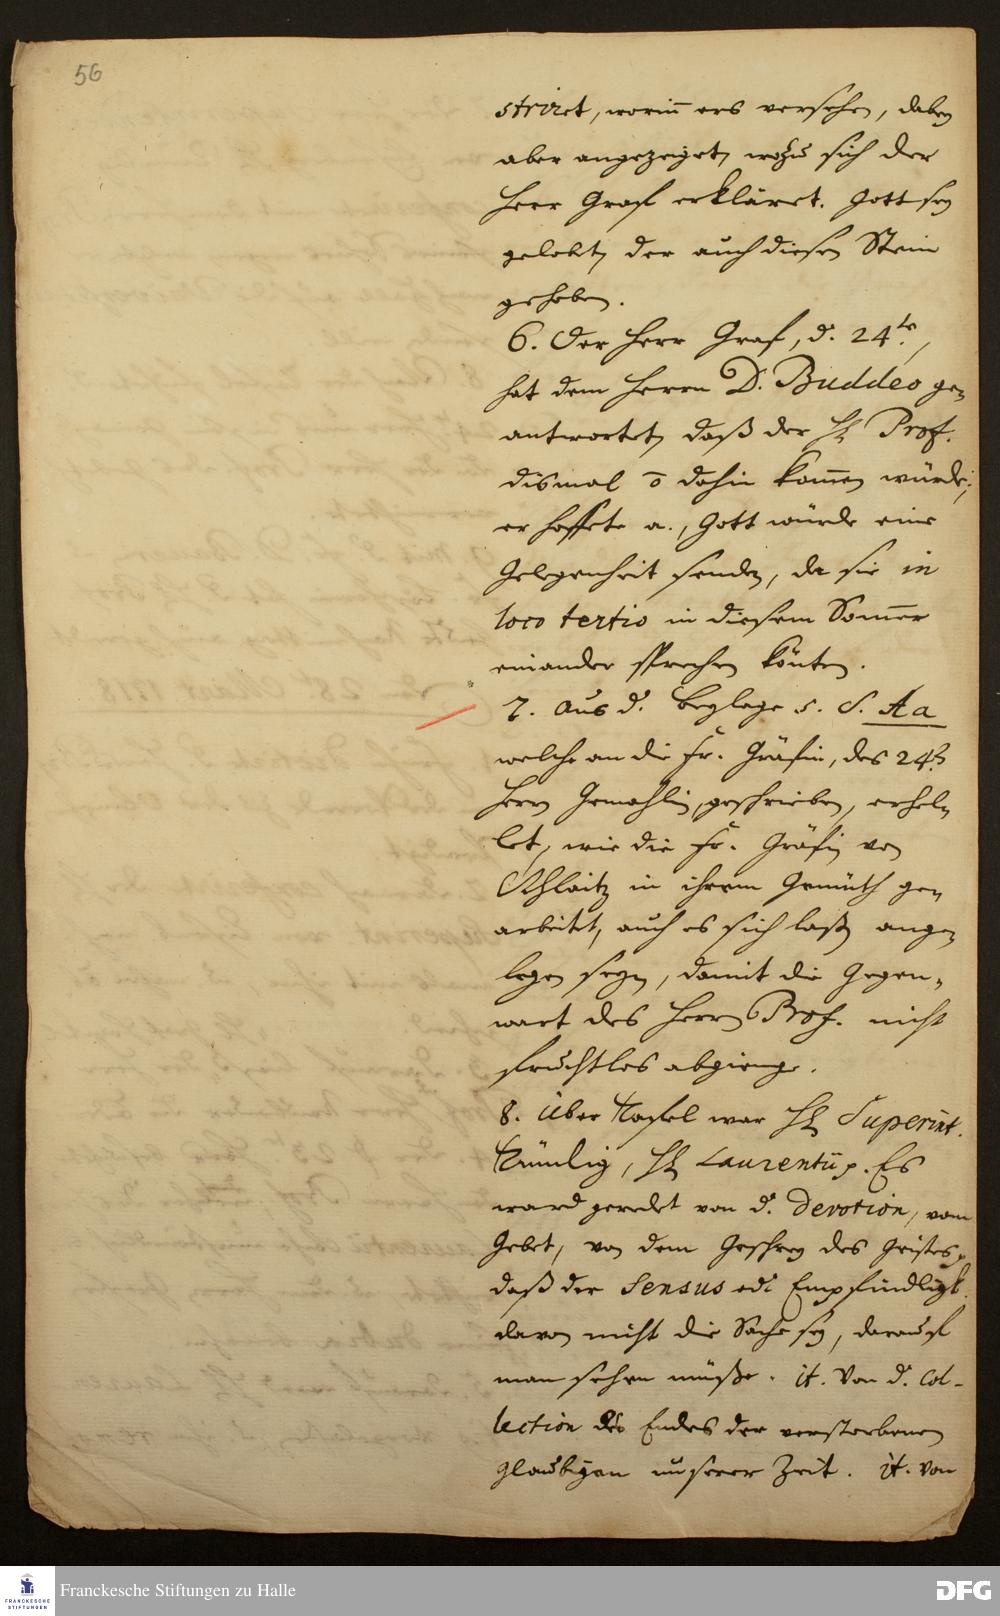 56
striret, worin ers versehen, dabey
aber angezeiget, wozu sich der
Herr Graf erkläret. Gott sey
gelobt, der auch diesen Stein
gehoben.
6. Der Herr Graf, d. 24te,
hat dem Herrn D. Buddeo ge-
antwortet, daß der H. Prof.
dismal o dahin kom̄en würde;
er hoffete a., Gott würde eine
Gelegenheit senden, da sie in
loco tertio in diesem Som̄er
einander sprechen könten.
7. Aus d. Beylage s. S. Aa
welche an die Fr. Gräfin, des 24t.
Herrn Gemahlin, geschrieben, erhel-
let, wie die Fr. Gräfin von
Schlaitz in ihrem Gemüth ge-
arbeitet, auch es sich laßen ange-
legen seyn, damit die Gegen-
wart des Herrn Prof. nicht
fruchtlos abgienge.
8. Über Tafel war H. Superint.
H. Laurentii p. Es
ward geredet von d. Devotion, vom
Gebet, von dem Geschrey des Geistes p
daß der Sensus od. Empfindligk.
davon nicht die Sache sey, darauf
man sehen müße. it. Von d. Col-
lection des Endes der verstorbenen
Glaubigen unserer Zeit. it. von
Franckesche Stiftungen zu Halle
FRANCKESCHE
STIFTUNGEN
DFG